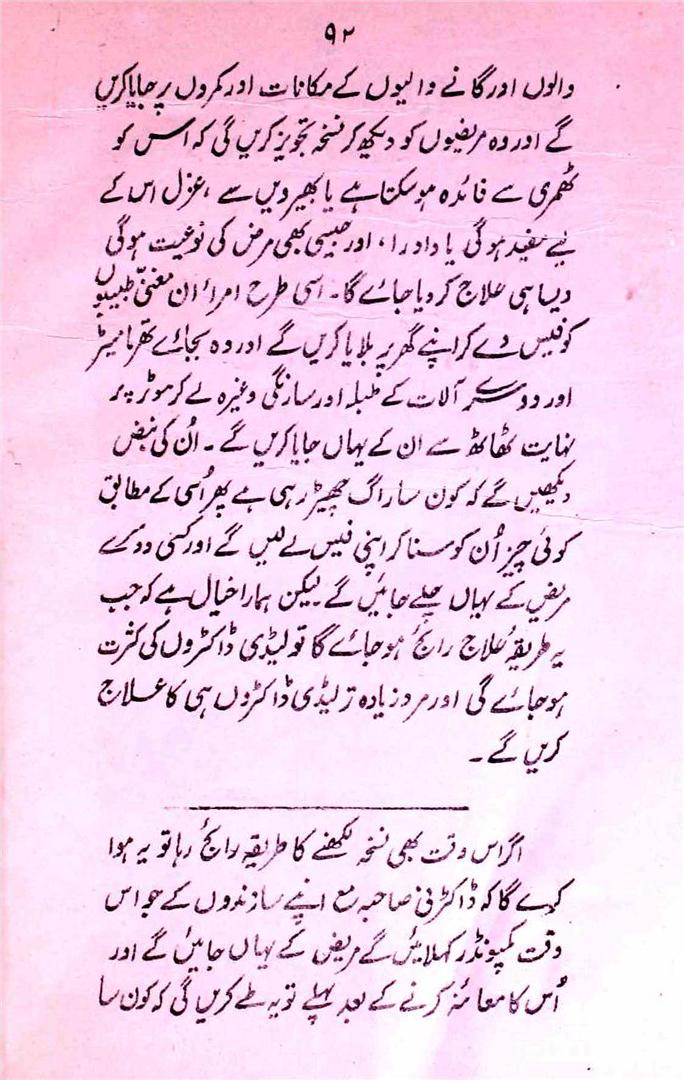 ۹۲
والوں اور گانے والیوں کے مکانات اور کمروں پر جایا کریں
گے اور وہ مریضوں کو دیکھ کر نسخہ تجویز کریں گی کہ اس کو
ٹھمری سے فائدہ ہو سکتا ہے یا بھیرویں سے ، غزل اس کے
لیے مفید ہوگی یا دادرا ، اور جیسی بھی مرض کی نوعیت ہوگی
ویسا ہی علاج کر دیا جائے گا۔ اسی طرح امراء ان مغنّی طبیبوں
کو فیس دے کر اپنے گھر پر بلایا کریں گے اور وہ بجائے تھرمامیٹر
اور دوسرے آلات کے طبلہ اور سارنگی وغیرہ لے کر موٹر پر
نہایت ٹھاٹھ سے ان کے یہاں جایا کریں گے ۔ اُن کی نبض
دیکھیں گے کہ کون سا راگ چھیڑ رہی ہے پھر اُسی کے مطابق
کوئی چیز اُن کو سنا کر اپنی فیس لے لیں گے اور کسی دوسرے
مریض کے یہاں چلے جائیں گے لیکن ہمارا خیال ہے کہ جب
یہ طریقۂ علاج رائج ہو جائے گا تو لیڈی ڈاکٹروں کی کثرت
ہو جائے گی اور مرد زیادہ تر لیڈی ڈاکٹروں ہی کا علاج
کریں گے ۔
اگر اس وقت بھی نسخہ لکھنے کا طریقہ رائج رہا تو یہ ہوا
کرے گا کہ ڈاکٹرنی صاحبہ مع اپنے سازندوں کے جو اس
وقت کمپونڈر کہلائیں گے مریض کے یہاں جائیں گے اور
اُس کا معائنہ کرنے کے بعد پہلے تو یہ طے کریں گی کہ کون سا